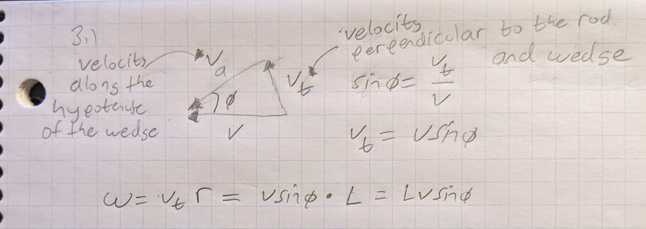 3.1
velocity
along the
hypotenuse
of the wedge
v_a
ϕ
v
v_t
velocity
perpendicular to the rod
and wedge
sinϕ = v_t/v
v_t = vsinϕ
ω = v_t r = vsinϕ · L = Lvsinϕ